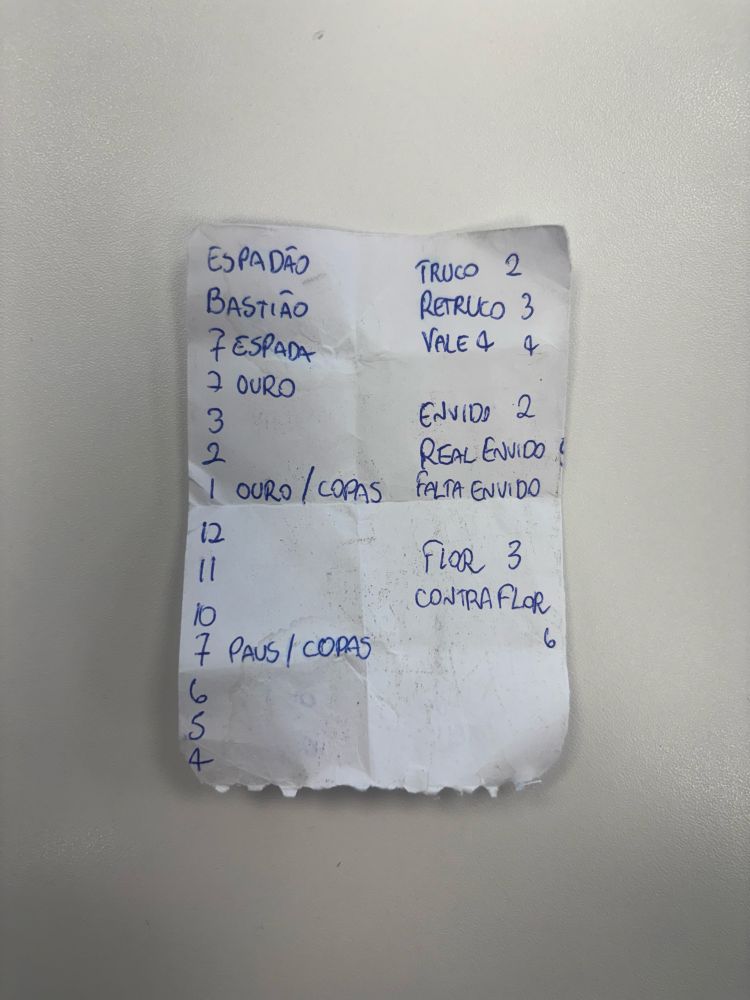 ESPADÃO
BASTIÃO
7 ESPADA
7 OURO
3
2
1 OURO / COPAS
12
11
10
7 PAUS / COPAS
6
5
4
TRUCO 2
RETRUCO 3
VALE 4 4
ENVIDO 2
REAL ENVIDO
FALTA ENVIDO
FLOR 3
CONTRAFLOR
6